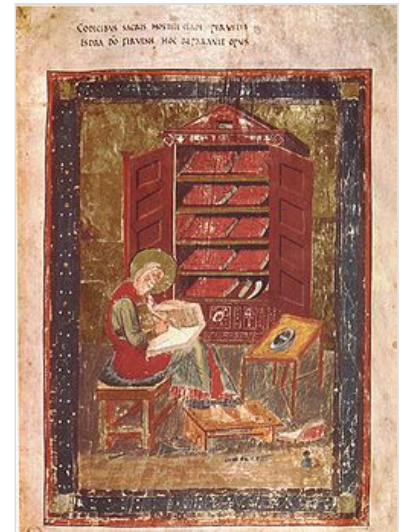 CODICIBUS SACRIS HOSTILI CLADE PERUSTIS
ESDRA DŌ FERVENS HOC REPARAVIT OPUS